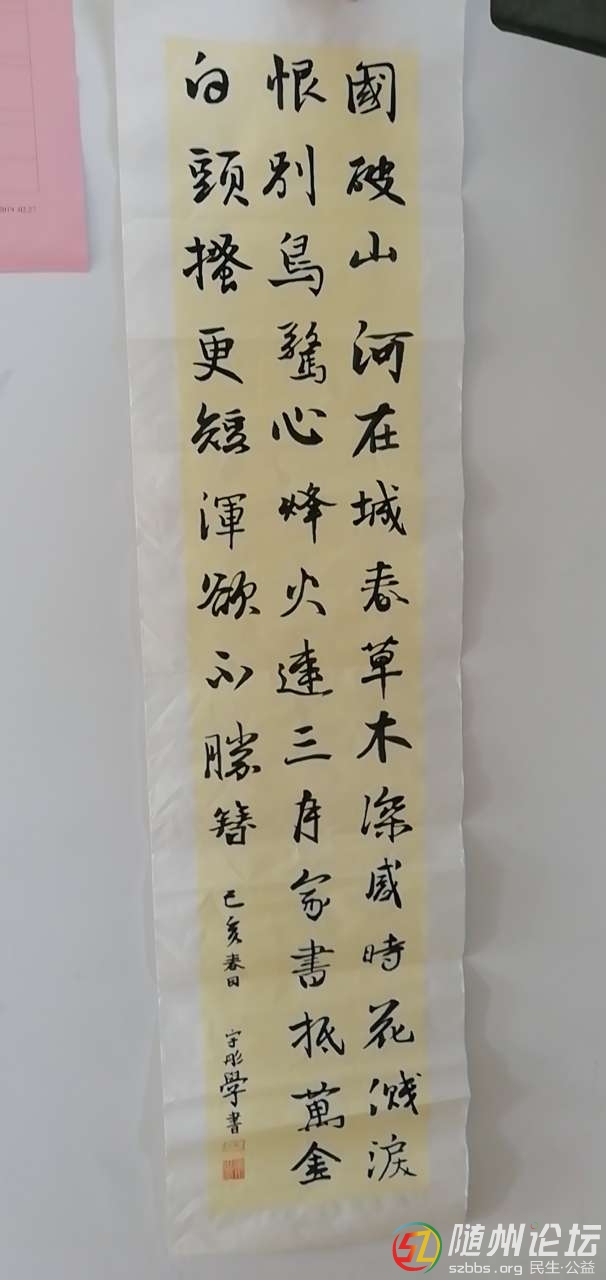 國破山河在城春草木深感時花濺淚
恨別鳥驚心烽火連三月家書抵萬金
白頭搔更短渾欲不勝簪
己亥春日
宇彤學書
2019.02.27
随州论坛
szbbs.org 民生·公益